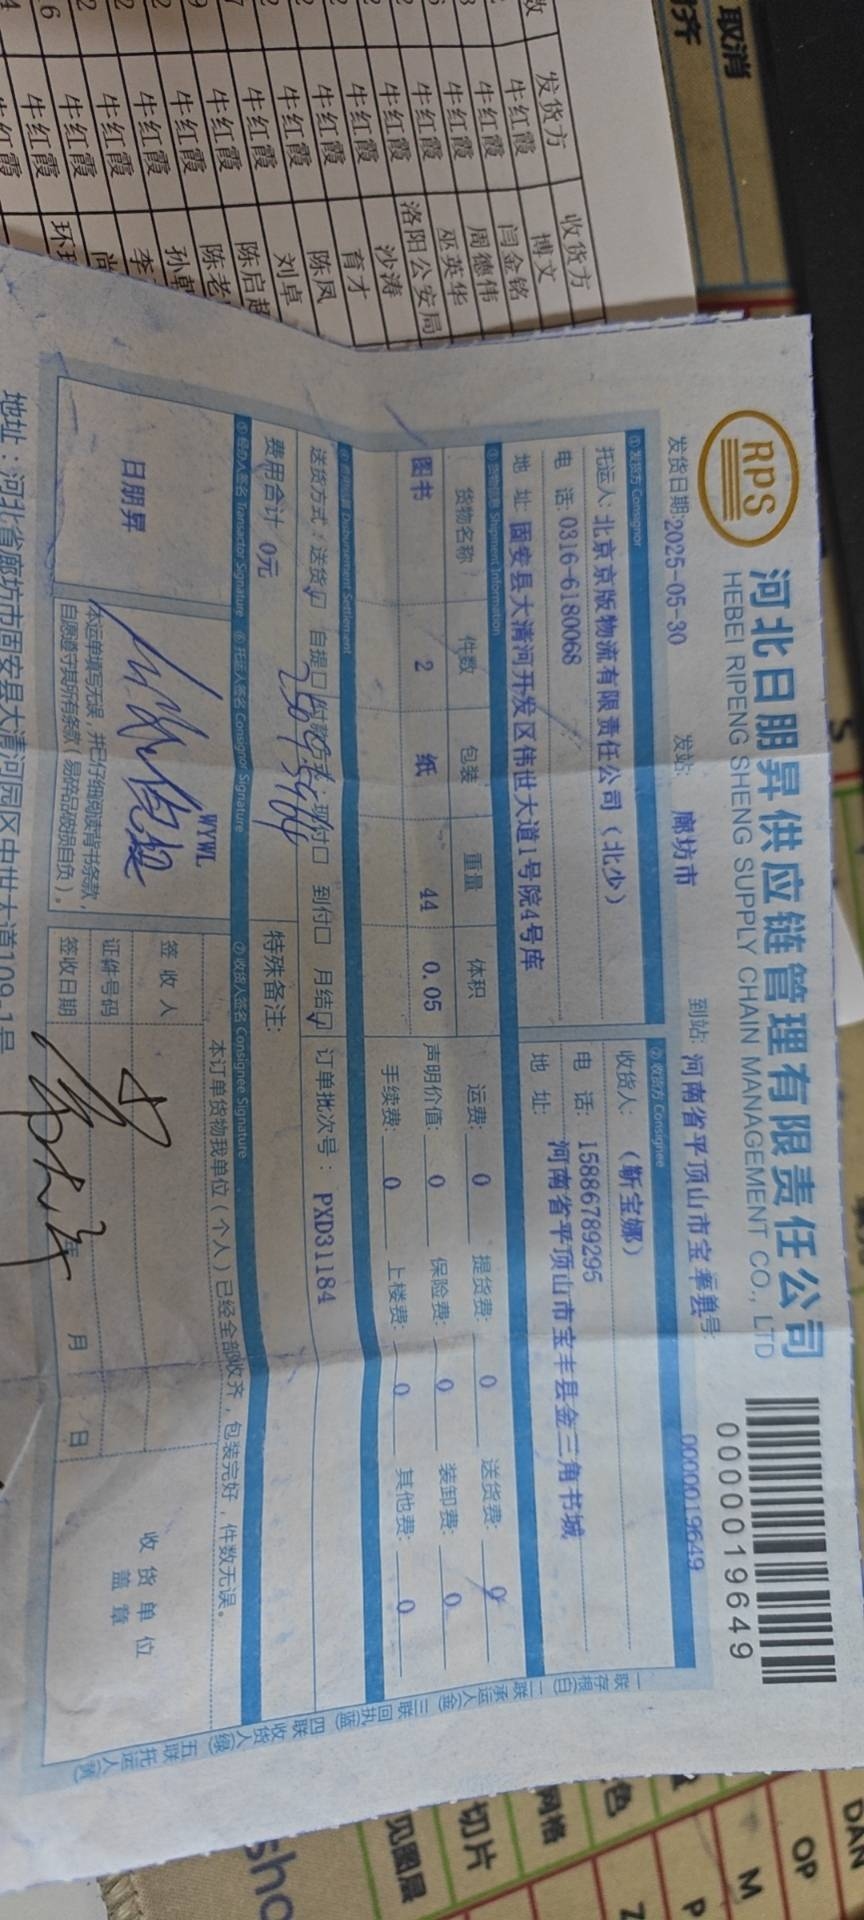 RPS
河北日朋昇供应链管理有限责任公司
HEBEI RIPENG SHENG SUPPLY CHAIN MANAGEMENT CO., LTD
0000019649
发货日期:2025-05-30 发站: 廊坊市 到站: 河南省平顶山市宝 号: 0000019649
①发货方 Consignor
托运人: 北京京版物流有限责任公司(北少)
电 话: 0316-6180068
地 址: 固安县大清河开发区伟世大道1号院4号库
②收货方 Consignee
收货人: (靳宝娜)
电 话: 15886789295
地 址: 河南省平顶山市宝丰县金三角书城
③货物信息 Shipment Information
货物名称 件数 包装 重量 体积
图书 2 纸 44 0.05
运费: 0 提货费: 0 送货费: 0
声明价值: 0 保险费: 0 装卸费: 0
手续费: 0 上楼费: 0 其他费: 0
Disbursement Settlement
送货方式: 送货☑ 自提□ 付款方式: 现付□ 到付□ 月结☑ 订单批次号: PXD31184
费用合计 0元
特殊备注:
⑤经办人签名 Transactor Signature ⑥托运人签名 Consignor Signature ⑦收货人签名 Consignee Signature
日朋昇
WYWL
本运单填写无误,并已仔细阅读背书条款,
自愿遵守其所有条款(易碎品破损自负)。
本订单货物我单位(个人)已经全部收齐,包装完好,件数无误。
签 收 人
证件号码
签收日期 年 月 日
收货单位
盖 章
一联存根(白) 二联承运人(金) 三联回执(蓝) 四联收货人(绿) 五联托运人(黄)
地址:河北省廊坊市固安县大清河园区中世大道109-1号
数 发货方 收货方
牛红霞 博文
牛红霞 闫金铭
牛红霞 周德伟
牛红霞 巫英华
牛红霞 洛阳公安局
牛红霞 沙涛
牛红霞 育才
牛红霞 陈凤
牛红霞 刘卓
牛红霞 陈启超
牛红霞 陈老
牛红霞 孙朝
牛红霞 李
牛红霞 尚
牛红霞
取消
对齐
切片
网格
见图层
色
DAN
OP
M
P
Z
sho